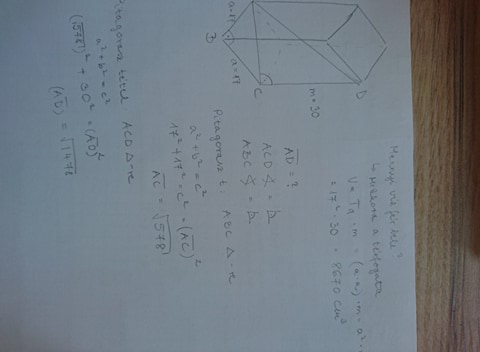 Mennyi víz fér bele?
↳ mekkora a térfogata
V = Ta · m = (a·a) · m = a² ·
= 17² · 30 = 8670 cm³
a=17
B
a=17
C
m=30
D
AD = ?
ACD ∢ = ⊾
ABC ∢ = ⊾
Pitagorasz t. ABC Δ-re
a² + b² = c²
17² + 17² = c² = (AC)²
AC = √578
Pitagorasz tétel ACD Δ-re
a² + b² = c²
(√578)² + 30² = (AD)²
(AD) = √1478